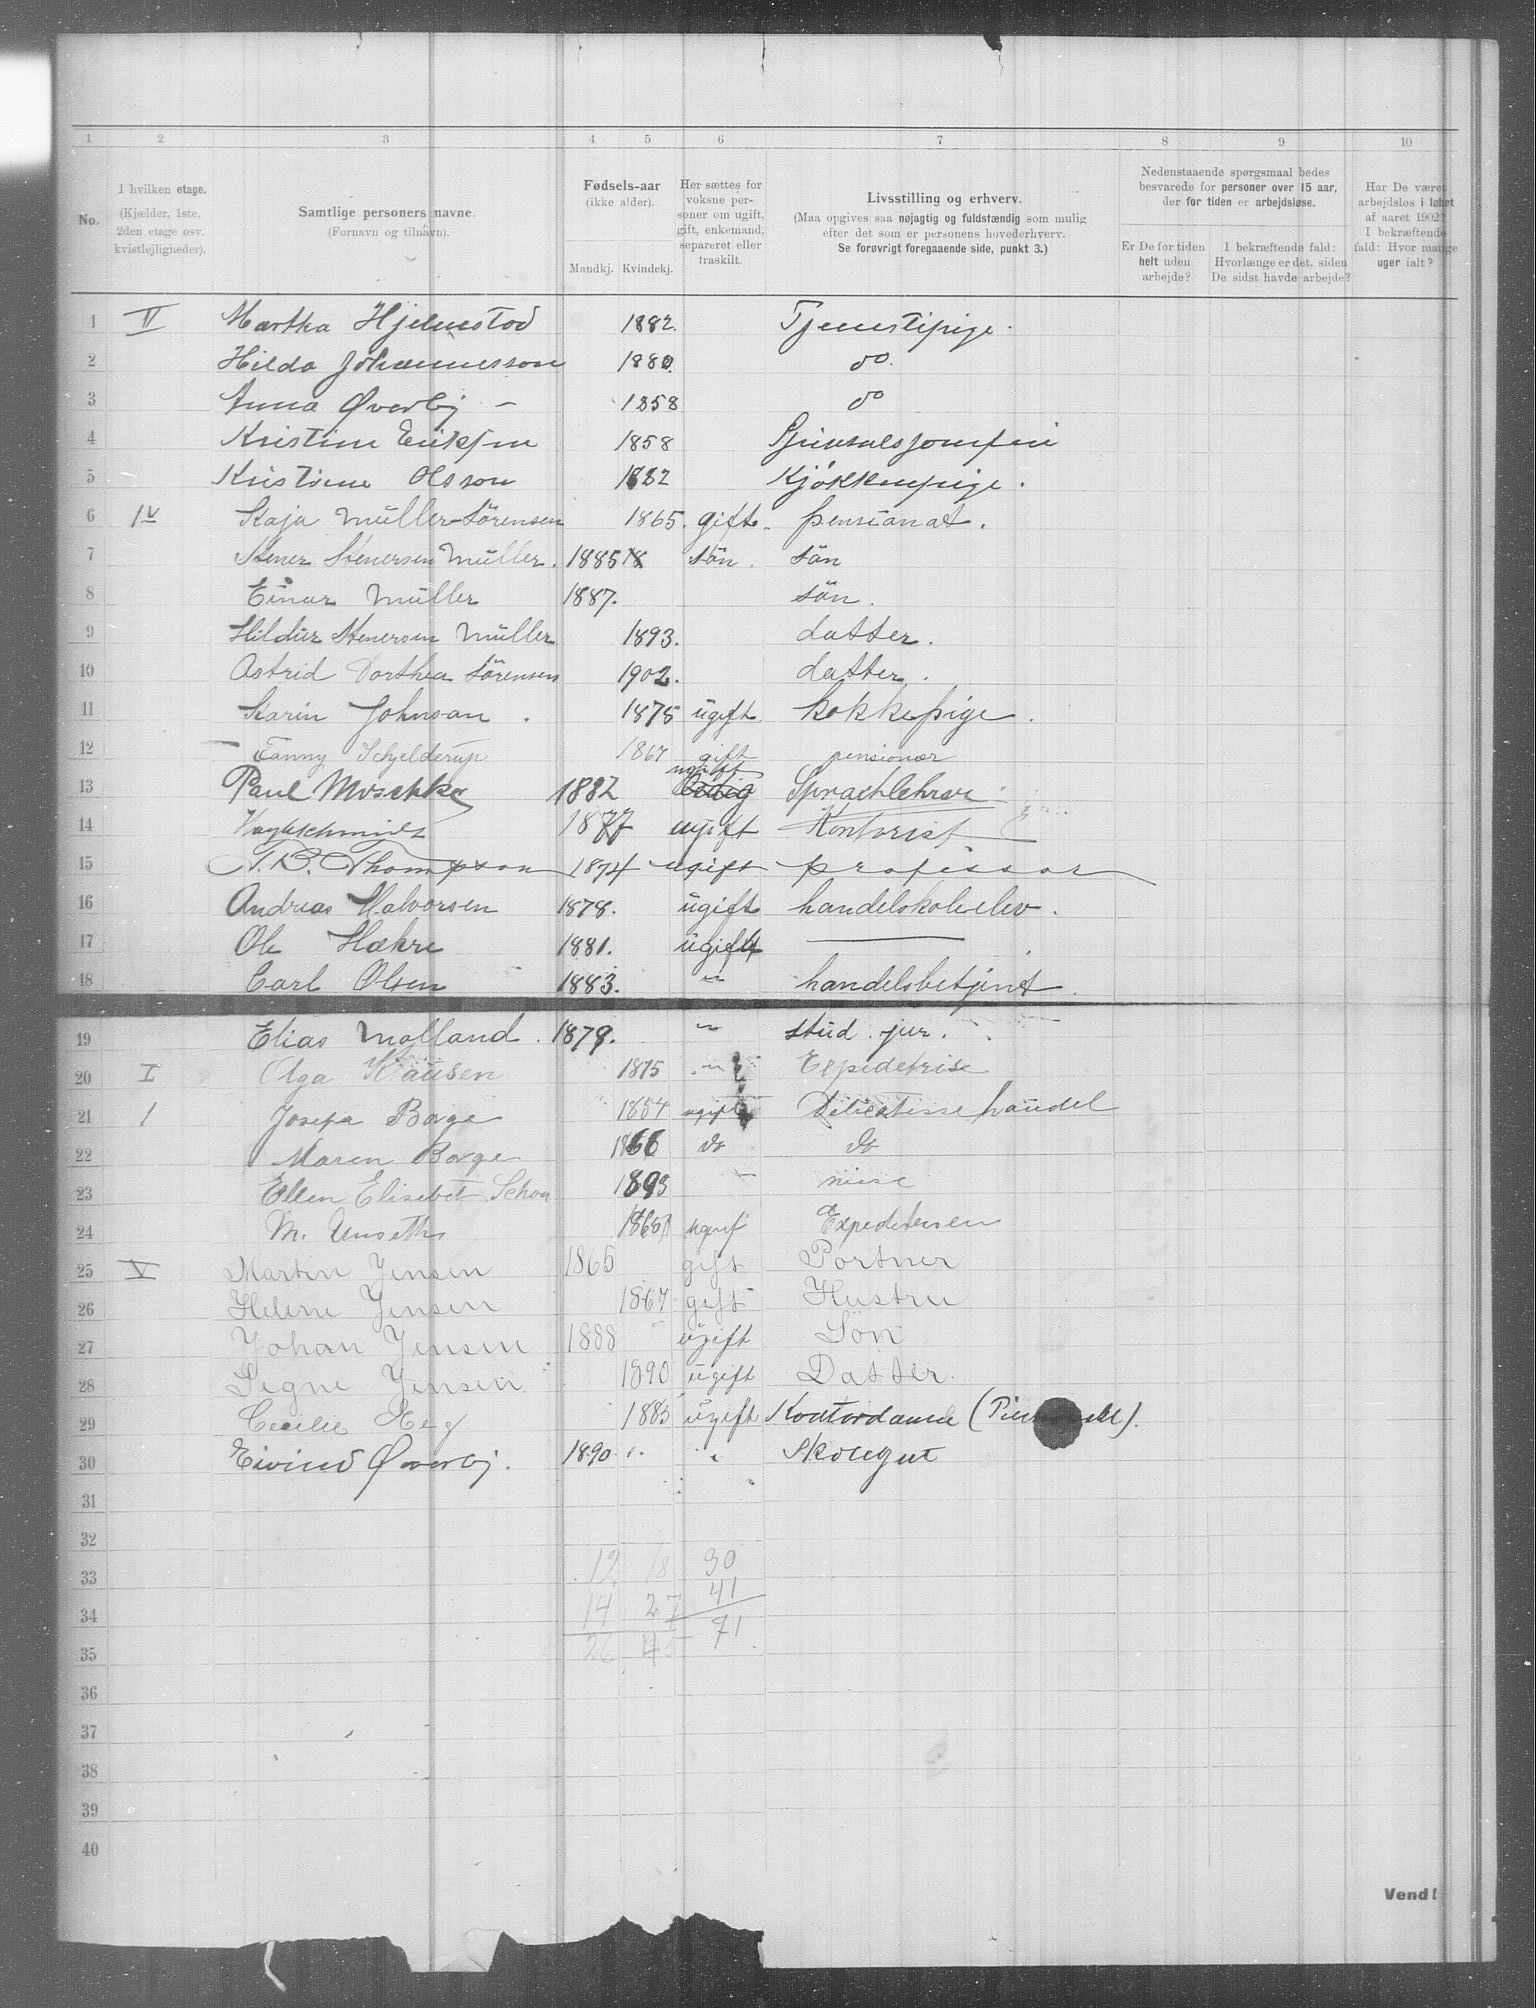 1 2 3 4 5 6 7 8 9 10
No.
I hvilken etage.
(Kjælder, 1ste, 2den etage osv. kvistlejligheder).
Samtlige personers navne.
(Fornavn og tilnavn).
Fødsels-aar
(ikke alder).
Mandkj. Kvindekj.
Her sættes for voksne personer om ugift, gift, enkemand, separeret eller fraskilt.
Livsstilling og erhverv.
(Maa opgives saa nøjagtig og fuldstændig som mulig efter det som er personens hovederhverv.
Se forøvrigt foregaaende side, punkt 3.)
Nedenstaaende spørgsmaal bedes besvarede for personer over 15 aar, der for tiden er arbejdsløse.
Er De for tiden helt uden arbejde?
I bekræftende fald: Hvorlænge er det, siden De sidst havde arbejde?
Har De været arbejdsløs i løbet af aaret 1902? I bekræftende fald: Hvor mange uger ialt?
1 V Martha Hjelmstod 1882. Tjenestepige.
2 Hilda Johannesson 1880. do.
3 Anna Øverby – 1858 do
4 Kristine Eriksen 1858
5 Kristine Olsson 1882 Kjøkkenpige.
6 IV Kaja Müller-Sörensen 1865. gift. pensianat.
7 Stener Stenersen Müller. 1885 sön. sön
8 Einar Müller 1887. sön.
9 Hildur Stenersen Müller 1893. datter.
10 Astrid Dorthea Sörensen 1902. datter.
11 Karin Johnson. 1875 ugift kokkepige.
12 – Fanny Schjelderup 1867 gift pensionær
13 Paul Moschka 1882 ugift ledig Sprachlehrer
14 1877 ugift Kontorist
15 T. B. Thompson 1874 ugift professor
16 Andreas Halvorsen 1878. ugift handelskolelev.
17 Ole Hækre 1881. ugift —
18 Carl Olsen 1883. " handelsbetjent.
19 Elias Molland. 1879. " stud. jur.
20 I Olga Klausen 1875 " Expeditrise
21 1 Josefa Borge 1854 ugift Delicatesse handel
22 Maren Borge 1866 do do
23 Ellen Elisebet Schou 1893 niese
24 M. Unseth 1865 ugif Expeditrisen
25 V Martin Jensen 1865 gift Portner
26 Helene Jensen 1867 gift Hustru
27 Johan Jensen 1888 ugift Sön
28 Signe Jensen 1890 ugift Datter.
29 Cecilie Heg 1885 ugift Kontordame
30 Eivind Øverby. 1890 " Skolegut
31
32
33 12 18 30
34 14 27 41
35 26 45 71
36
37
38
39
40
Vend!